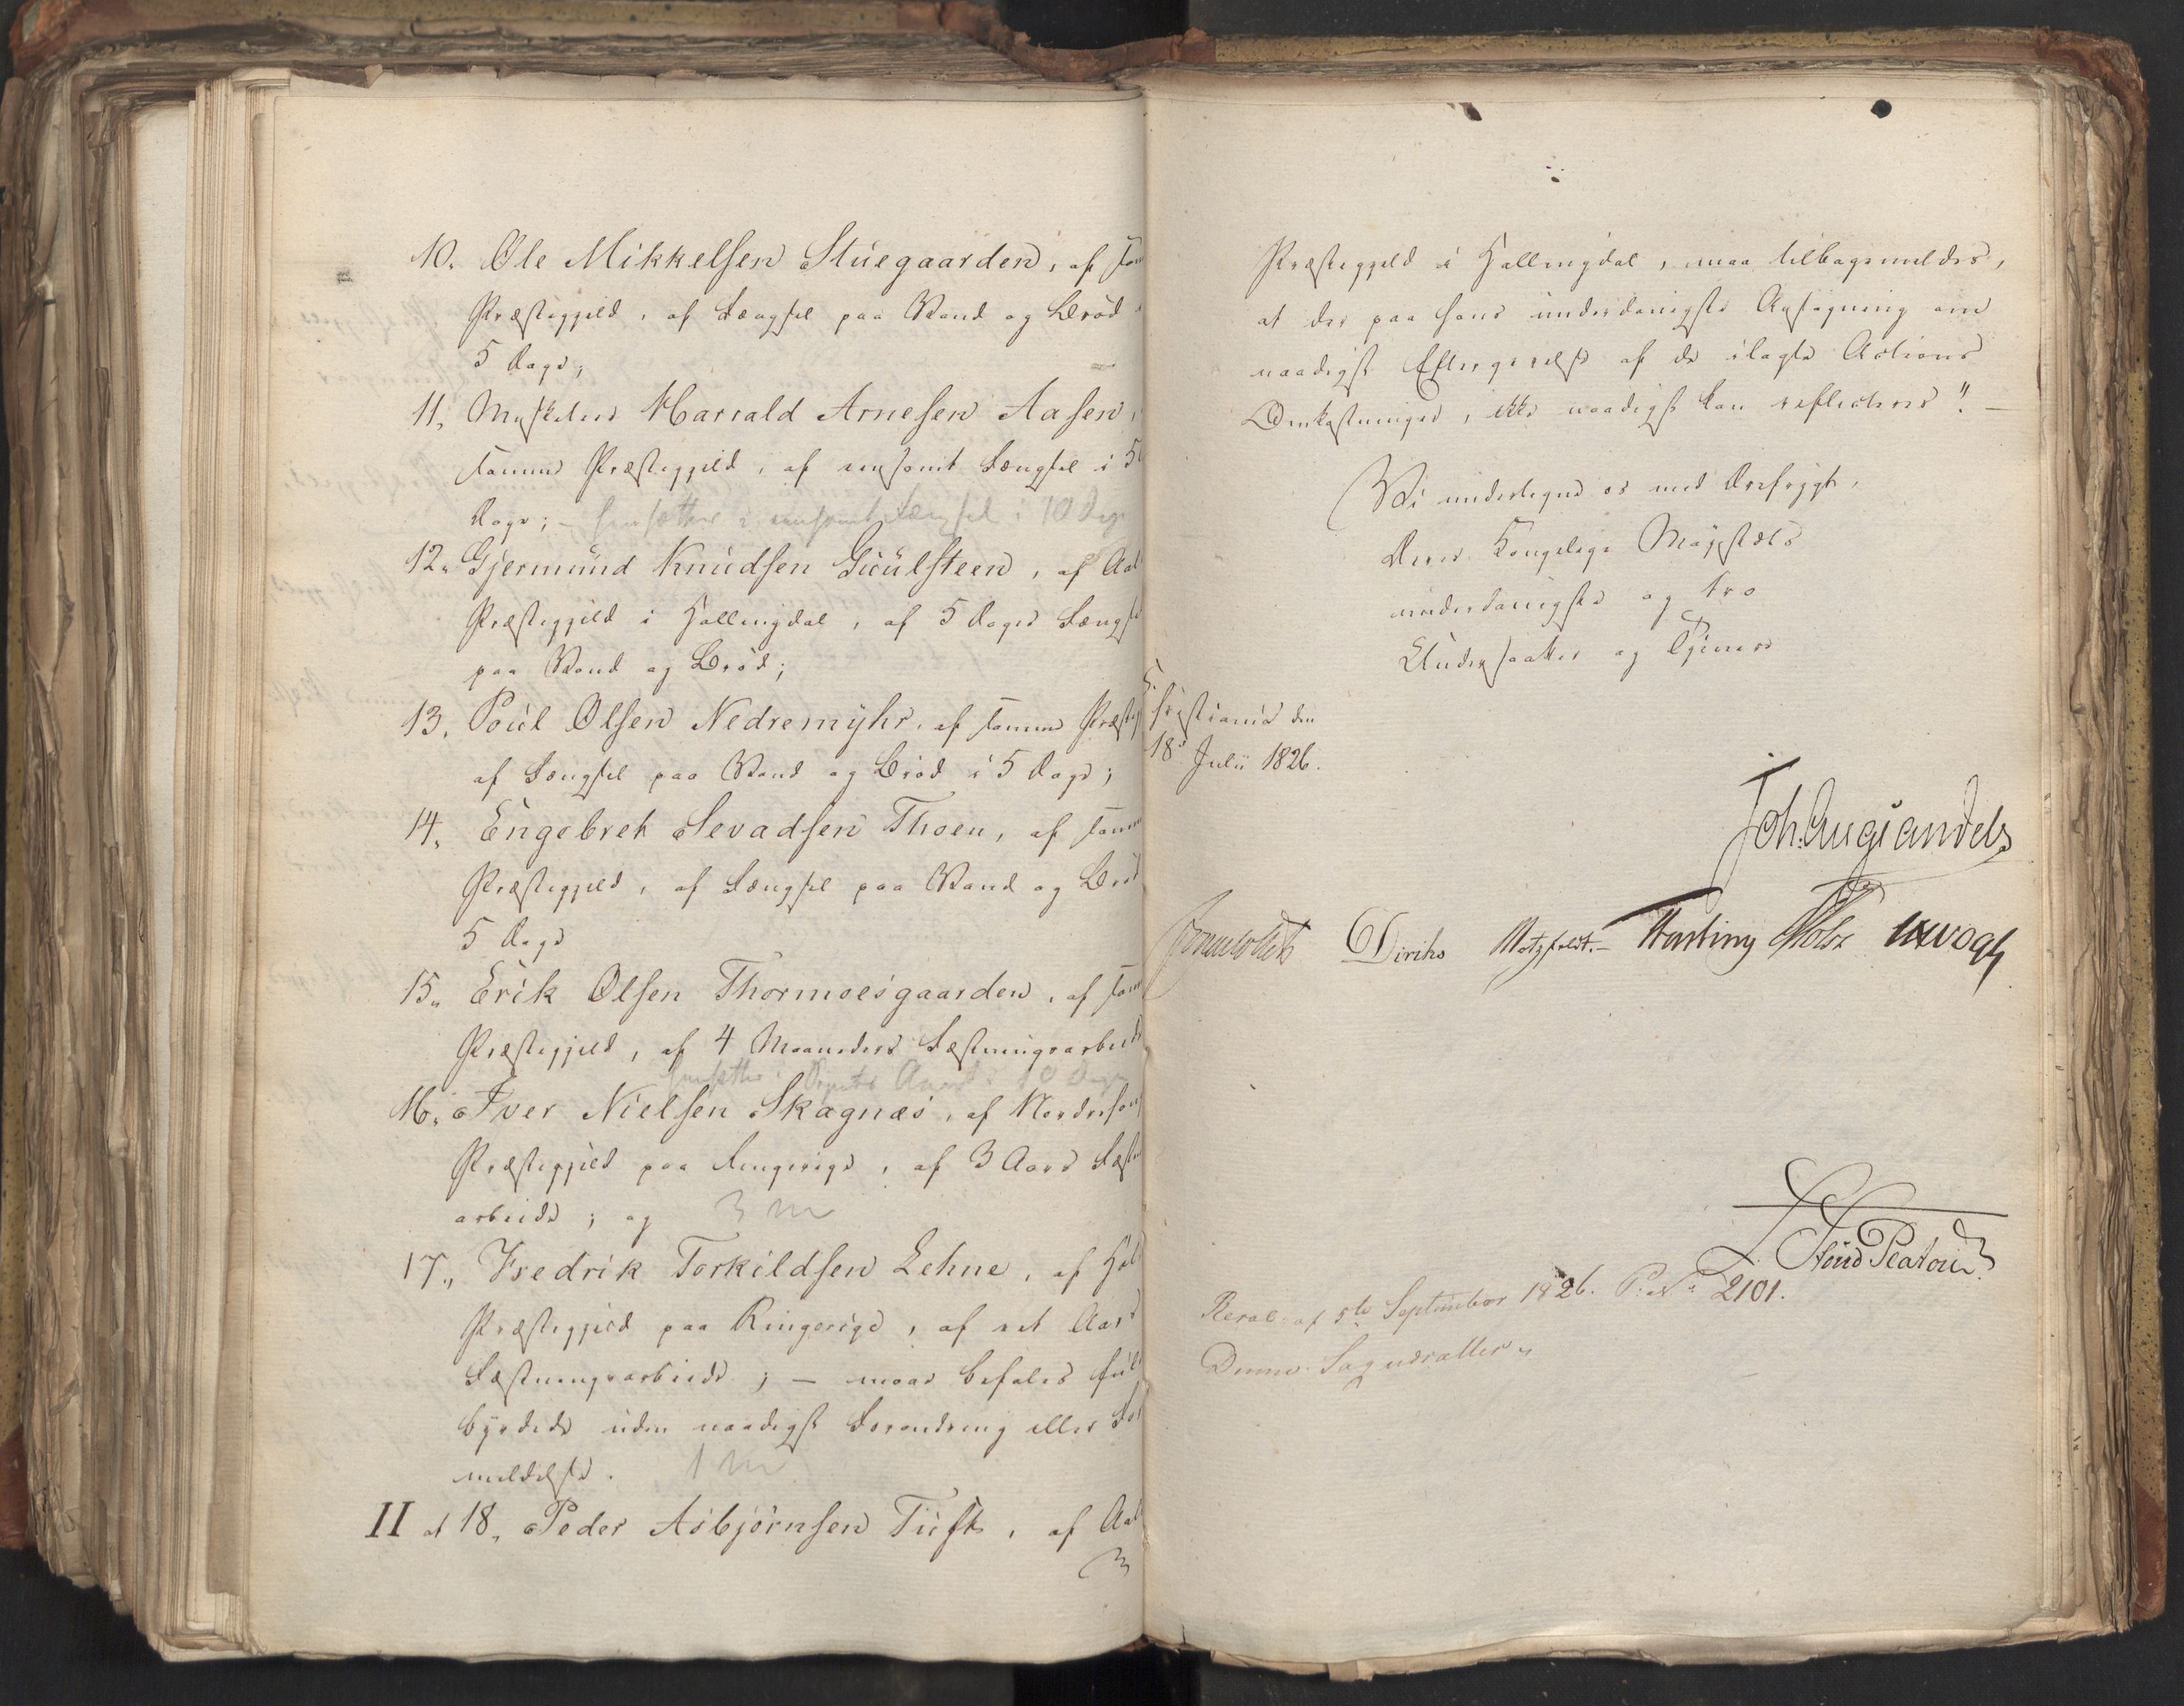 10. Ole Mikkelsen Stuegaarden, af samme
Præstegjeld, af Fængsel paa Vand og Brød i
5 Dage;
11, Musketeer Harald Arnesen Aasen,
samme Præstegjeld, af eensomt Fængsel i 5
Dage; - hensættes i eensomt Fængsel i 10 Dage
12. Gjermund Knudsen Guulsteen, af Aal
Præstegjeld i Hallingdal, af 5 Dages Fængsel
paa Vand og Brød;
13, Poul Olsen Nedremyhr, af samme Præstegj
af Fængsel paa Vand og Brød i 5 Dage;
14, Engebret Sevadsen Thoen, af samme
Præstegjeld, af Fængsel paa Vand og Brød
5 Dage
15, Erik Olsen Thormoesgaarden, af samme
Præstegjeld, af 4 Maaneders Fæstningsarbeide
hensættes i Arrest i 10 Dage
16, Iver Nielsen Skagnæs, af Norderhous
Præstegjeld paa Ringerige, af 3 Aars Fæstn
arbeide; og 3 m
17, Fredrik Torkildsen Lehne, af Hol
Præstegjeld paa Ringerige, af eet Aars
Fæstningsarbeide; — maae befales fuld
byrdede uden naadigst Forandring eller For
mildelse. 1 m
II at 18, Peder Asbjørnsen Tufte, af Aal
Præstegjeld i Hallingdal, maa tilbagemeldes,
at der paa hans underdanigste Ansøgning om
naadigst Eftergivelse af de ilagte Actions
Omkostninger, ikke naadigst kan reflecteres". —
Vi undertegne os med Ærefrygt,
Deres Kongelige Majestæts
underdanigste og tro
Undersaatter og Tjenere
Christiania den
18de Julii 1826.
Joh. Aug Sandels
Sommerfeldt Diriks Motzfeldt. — Fasting Holst JHVogt
L. Stoud Platou
Resol. af 5te September 1826. P: No 2101.
Denne Sag udsættes